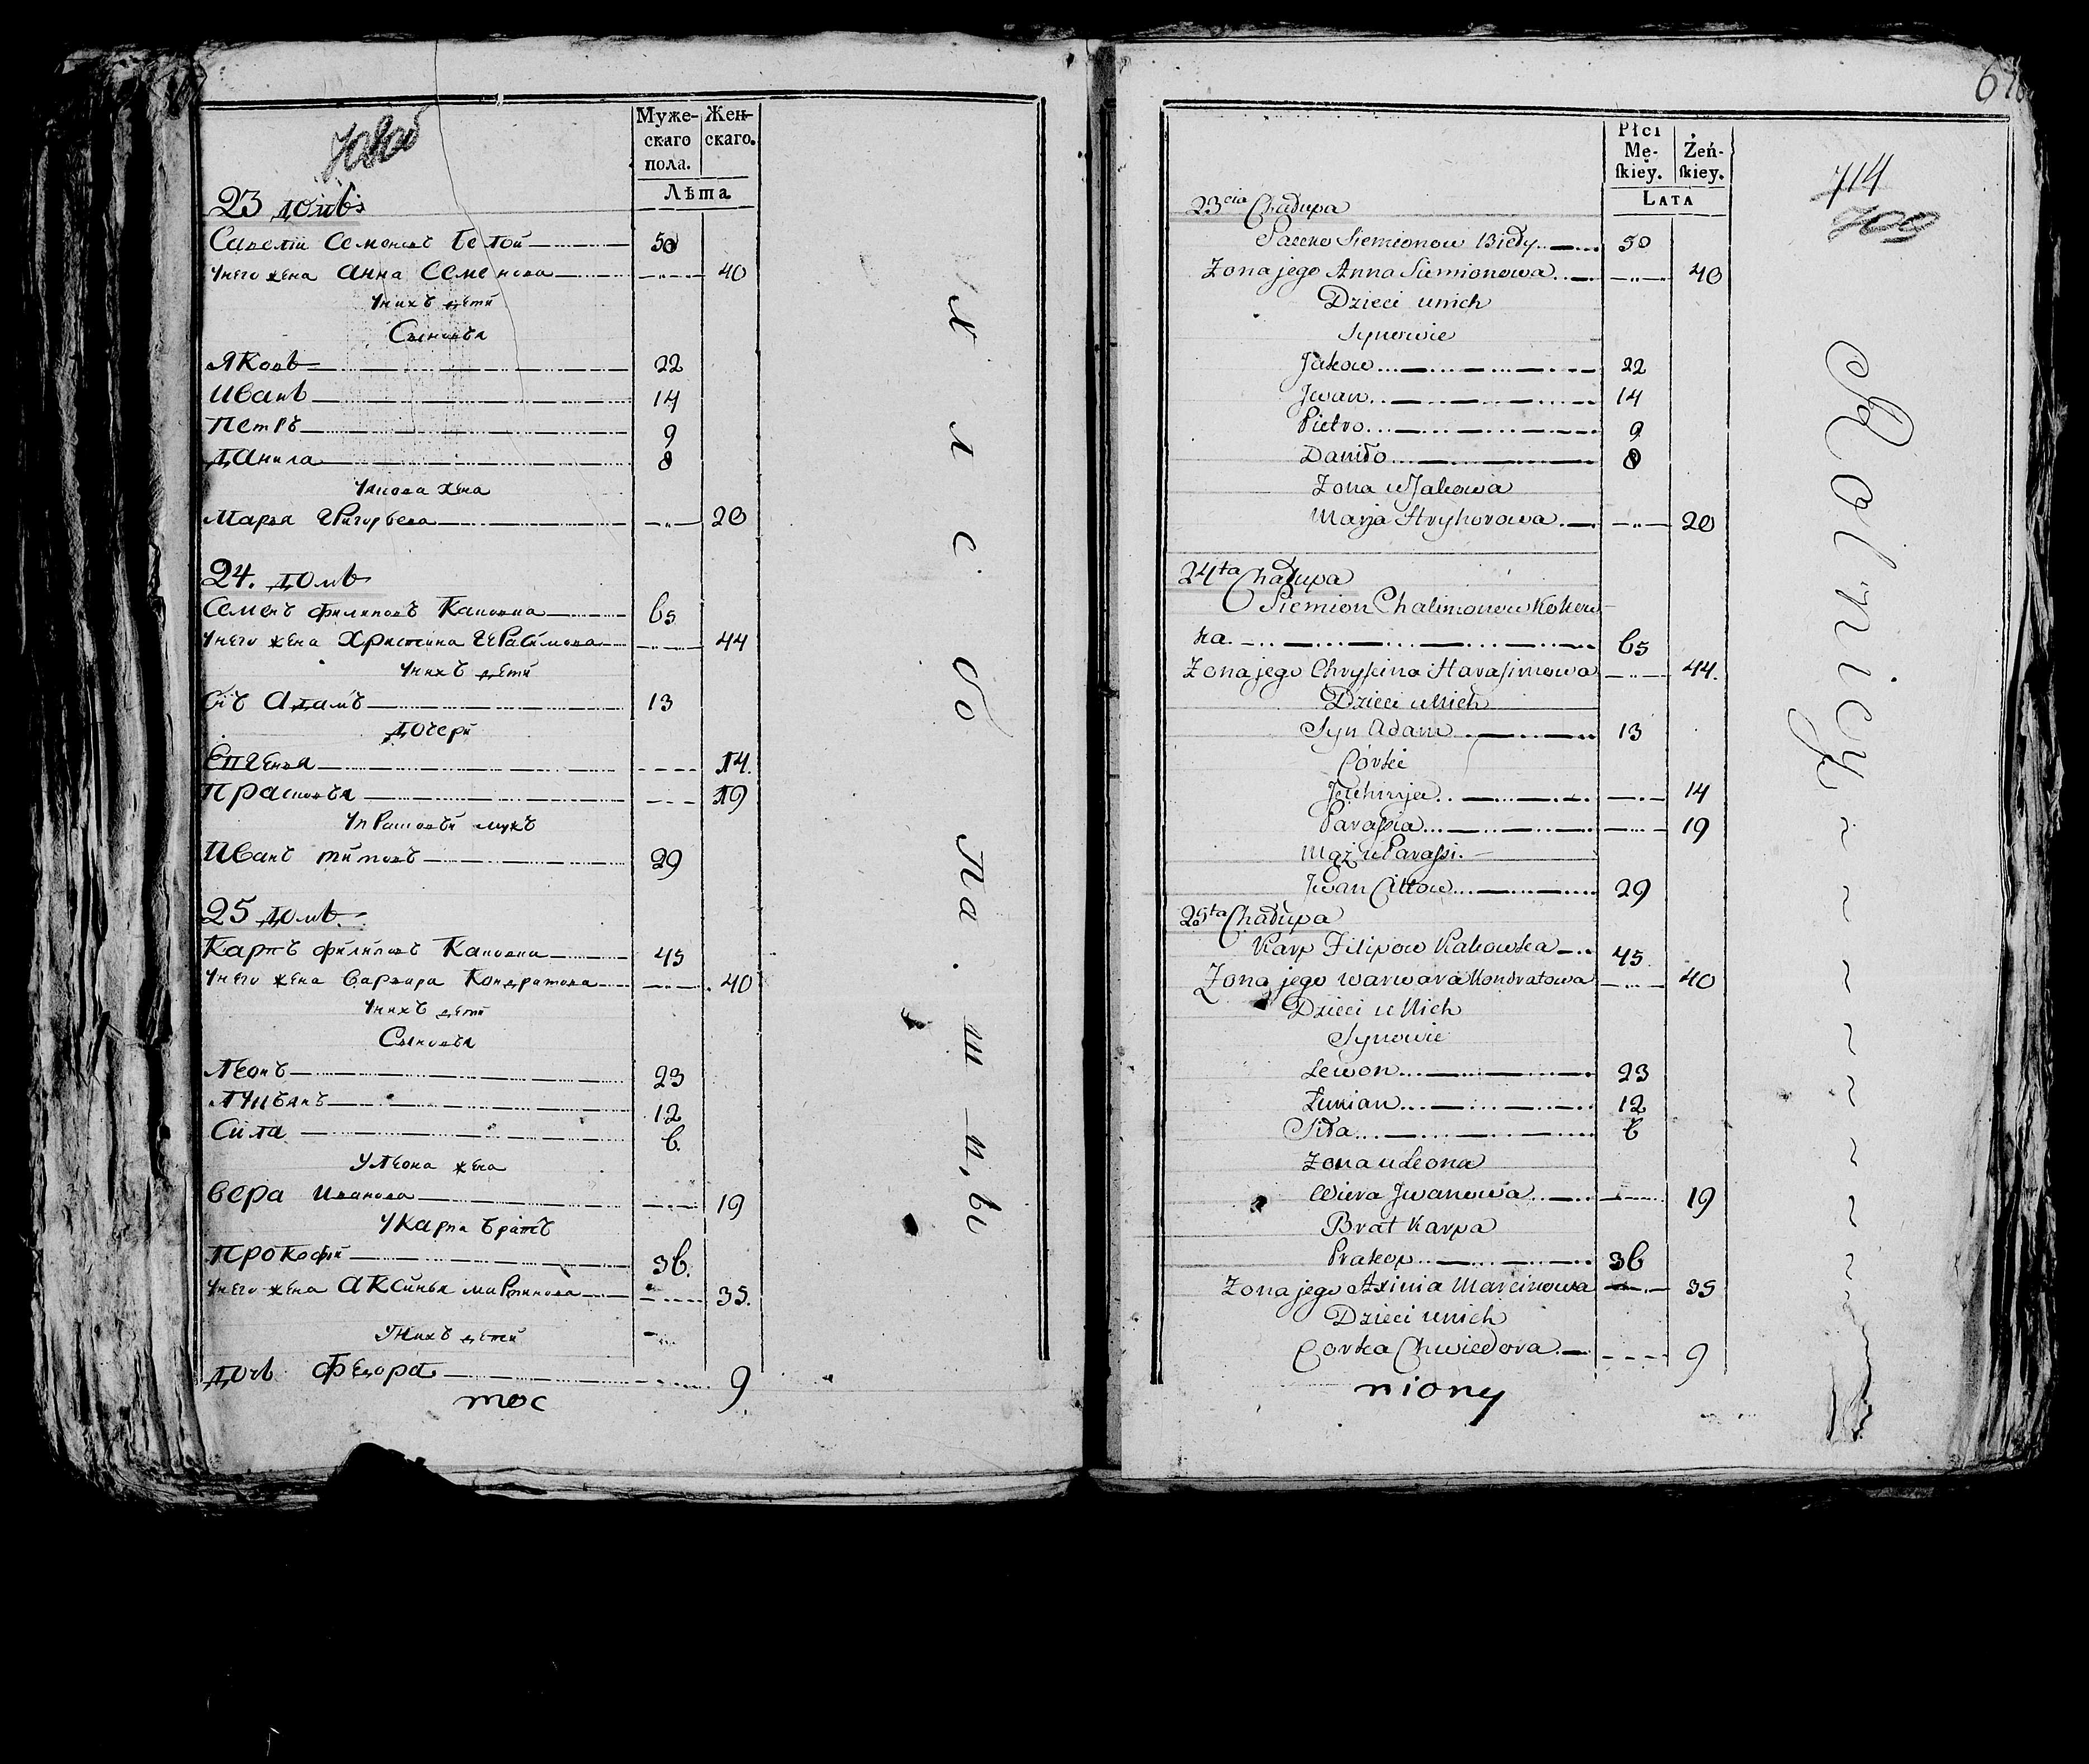 Муже-
скаго
пола.
Жен-
скаго.
Лѣта
23 домъ
Савелiй Семеновъ Белой 50
Унего жена Анна Семенова 40
Унихъ дети
Сыновья
Яковъ 22
Иванъ 14
Петръ 9
Данила 8
Якова жена
Марья Григорьева 20
24. домъ
Семенъ Филиповъ Каковка 65
Унего жена Христина Герасимова 44
Унихъ дети
Адамъ 13
дочери
Евгенья 14.
Прасковья 19
Упрасковьи мужъ
Иванъ Титовъ 29
25 домъ
Карпъ Филиповъ Каковка 45
Унего жена Варвара Кондратова 40
Унихъ дети
Сыновья
Леонъ 23
Лукьянъ 12
Сила 6.
Улеона жена
Вера Иванова 19
Укарпа братъ
Прокофiй 36.
Унего жена Аксинья Мартинова 35.
Унихъ дети
дочь Федора 9
тос
хлебопашцы
Płci
Mę-
ſkiey.
Żeń-
ſkiey.
LATA
714
709
23cia Chałupa
Siemionow Biały 50
Zona jego Anna Siemionowa 40
Dzieci unich
Synowie
Jakow 22
Jwan 14
Pietro 9
Daniło 8
Zona uJakowa
Marja Hryhorowa 20
24ta Chałupa
Siemion Chalimonow Kakow
ka 65
Zona jego Chryſtina Haraſimowa 44.
Dzieci uNich
Syn Adam 13
Córki
Jauhinja 14
Paraſia 19
Mąż uParaſsi.
Jwan Cittow 29
25ta Chałupa
Karp Filipow Kakowka 45
Zona jego Warwara Kondratowa 40
Dzieci uNich
Synowie
Lewon 23
Łukian 12
Siła 6
Zona uLeona
Wiera Jwanowa 19
Brat Karpa
Prakop 36
Zona jego Axinia Marcinowa 35
Dzieci unich
Corka Chwiedora 9
niony
Rolnicy